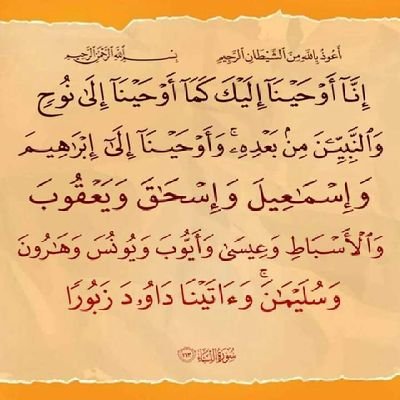 أَعُوذُ بِاللَّهِ مِنَ الشَّيْطَانِ الرَّجِيمِ بِسْمِ اللَّهِ الرَّحْمَٰنِ الرَّحِيمِ
إِنَّآ أَوْحَيْنَآ إِلَيْكَ كَمَآ أَوْحَيْنَآ إِلَىٰ نُوحٍ
وَٱلنَّبِيِّـۧنَ مِنۢ بَعْدِهِۦ ۚ وَأَوْحَيْنَآ إِلَىٰٓ إِبْرَٰهِيمَ
وَإِسْمَٰعِيلَ وَإِسْحَٰقَ وَيَعْقُوبَ
وَٱلْأَسْبَاطِ وَعِيسَىٰ وَأَيُّوبَ وَيُونُسَ وَهَٰرُونَ
وَسُلَيْمَٰنَ ۚ وَءَاتَيْنَا دَاوُۥدَ زَبُورًا
سُورَةُ النِّسَاءِ ١٦٣